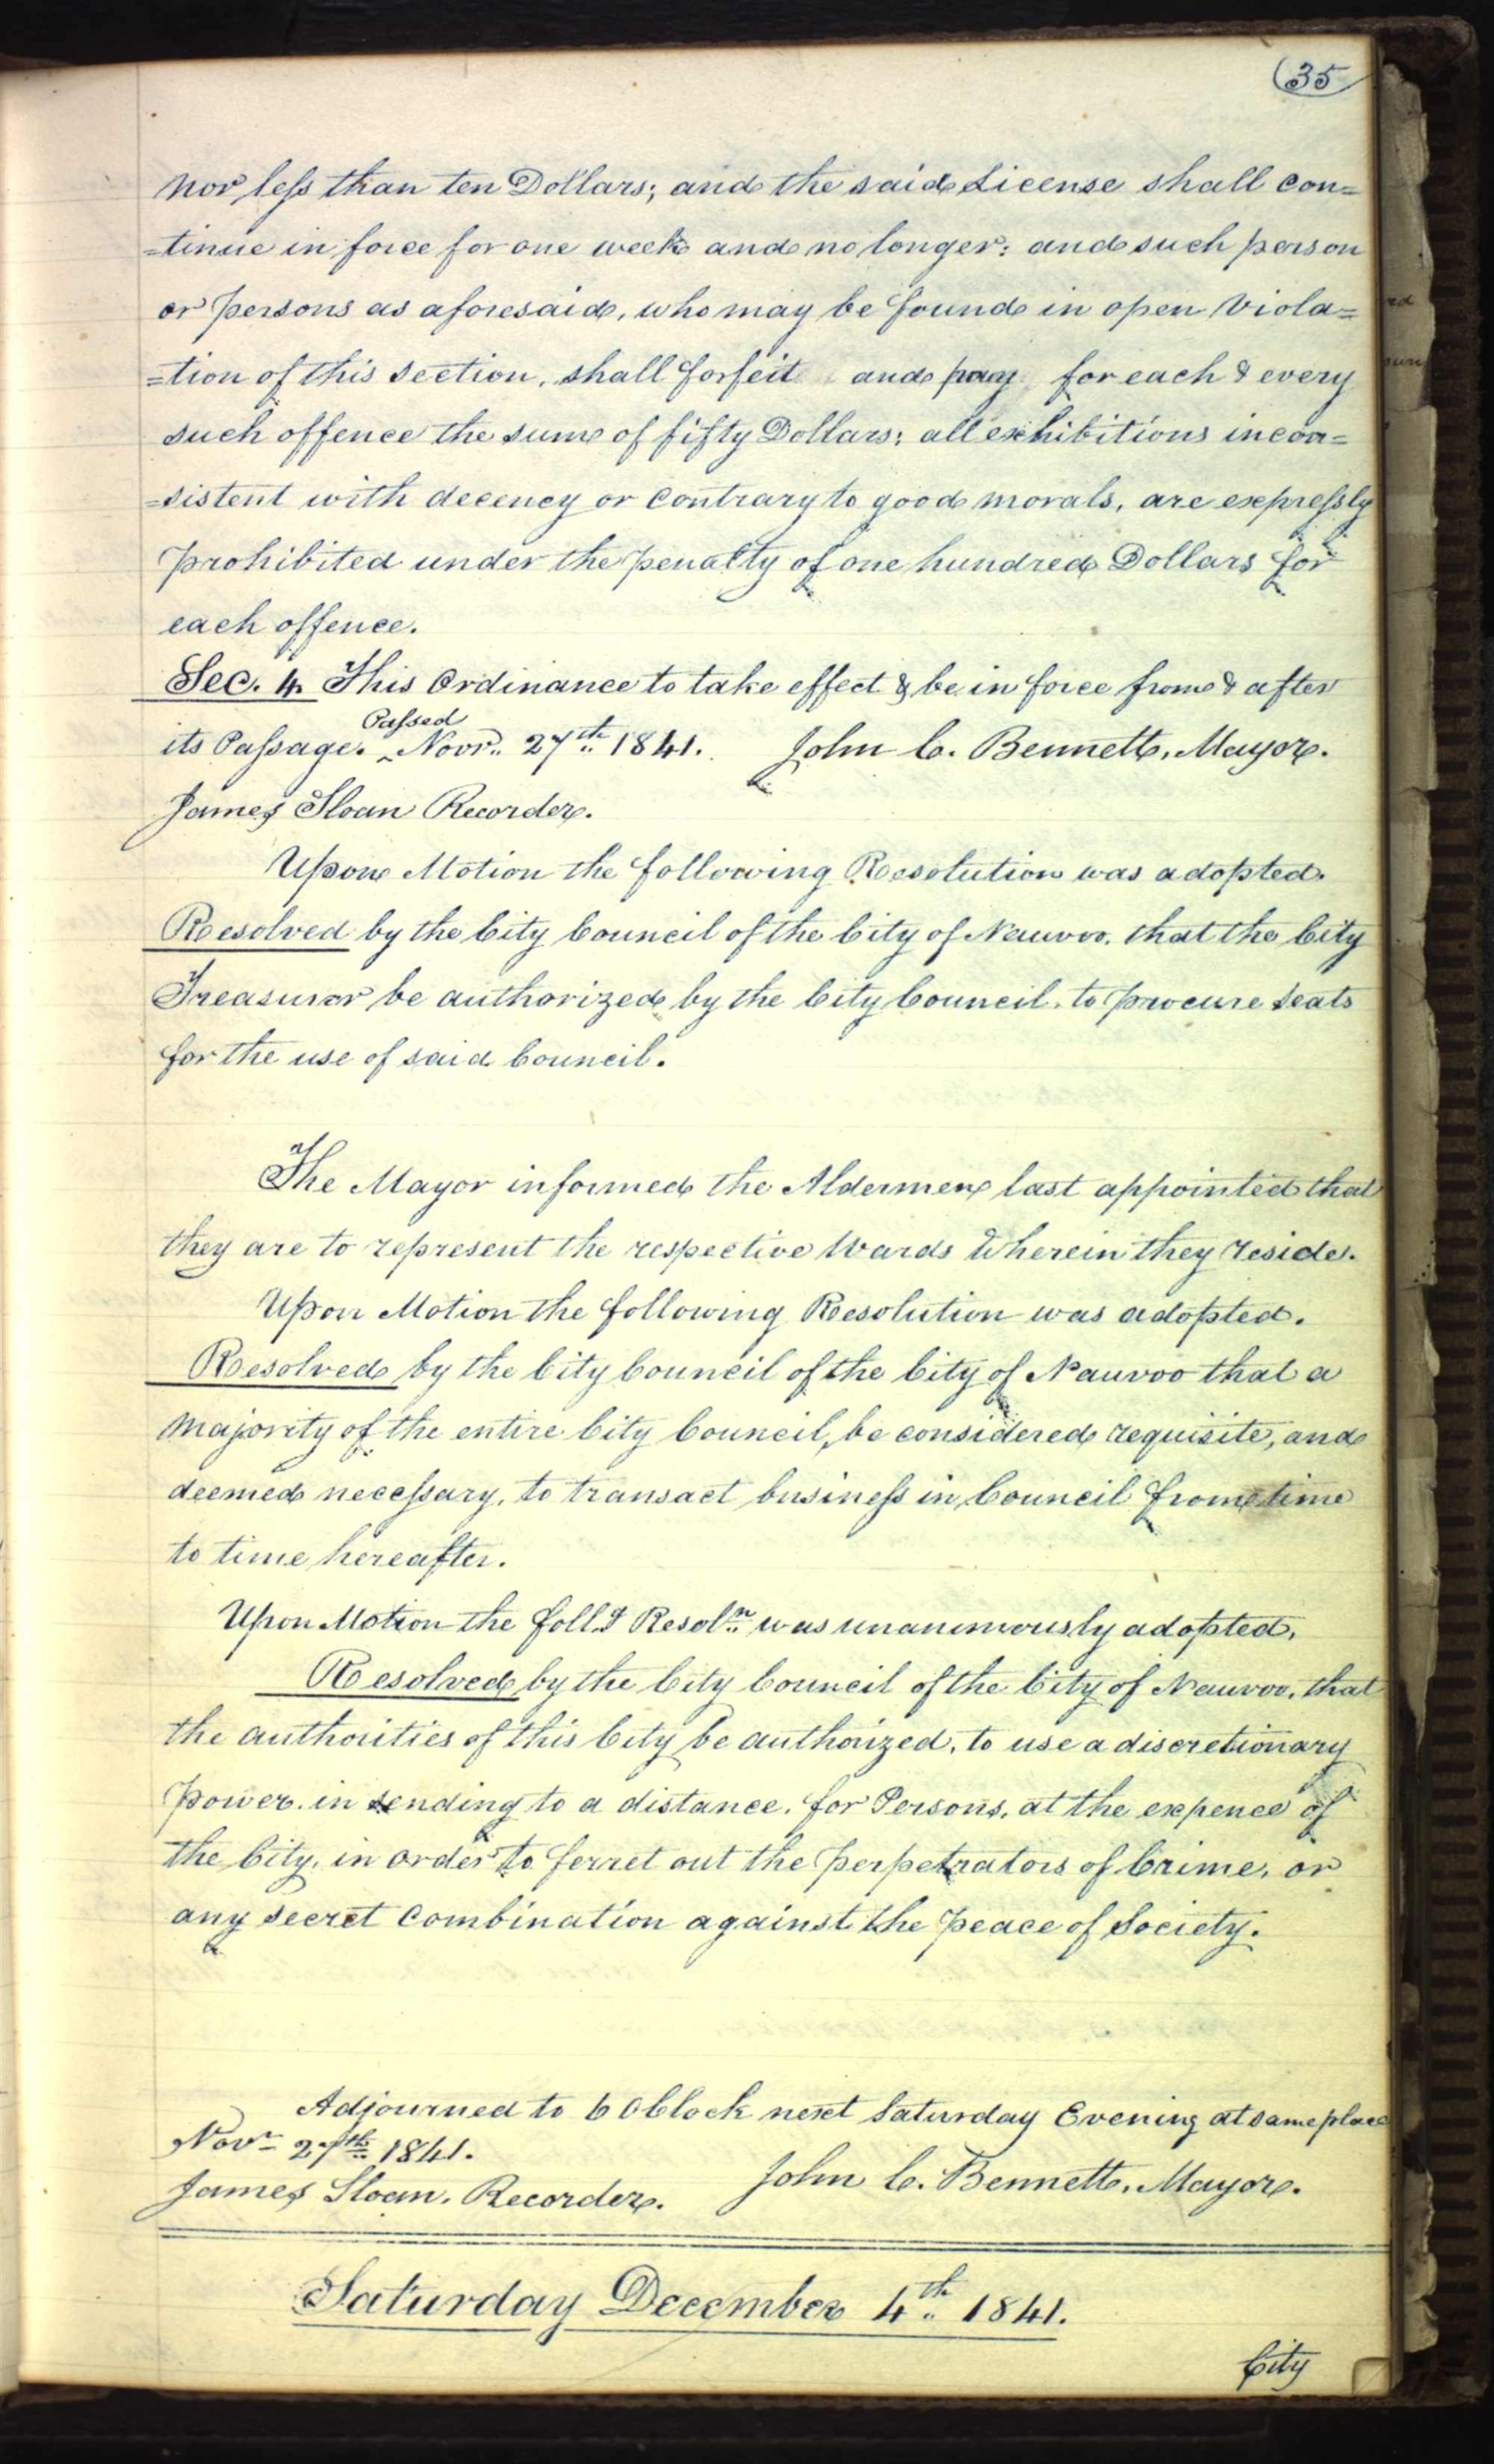 35
nor less than ten Dollars; and the said License shall con=
=tinue in force for one week and no longer: and such person
or persons as aforesaid, who may be found in open viola=
=tion of this section, shall forfeit and pay for each & every
such offence the sum of fifty Dollars: all exhibitions incon=
=sistent with decency or contrary to good morals, are expressly
prohibited under the penalty of one hundred Dollars for
each offence.
Sec. 4. This Ordinance to take effect & be in force from & after
its Passage. ‸Passed Novr. 27th. 1841. John C. Bennett, Mayor.
James Sloan Recorder.
Upon Motion the following Resolution was adopted.
Resolved by the City Council of the City of Nauvoo, that the City
Treasurer be authorized by the City Council, to procure Seats
for the use of said Council.
The Mayor informed the Aldermen last appointed that
they are to represent the respective Wards wherein they reside.
Upon Motion the following Resolution was adopted.
Resolved by the City Council of the City of Nauvoo that a
majority of the entire City Council, be considered requisite, and
deemed necessary, to transact business in Council from time
to time hereafter.
Upon Motion the follg. Resoln. was unanimously adopted,
Resolved by the City Council of the City of Nauvoo, that
the authorities of this City be authorized, to use a discretionary
power, in sending to a distance, for Persons, at the expence of
the City, in order to ferret out the perpetrators of Crime, or
any secret combination against the peace of Society.
Adjourned to 6 OClock next Saturday Evening at same place
Novr 27th. 1841.
James Sloan, Recorder. John C. Bennett, Mayor.
Saturday December 4th. 1841.
City